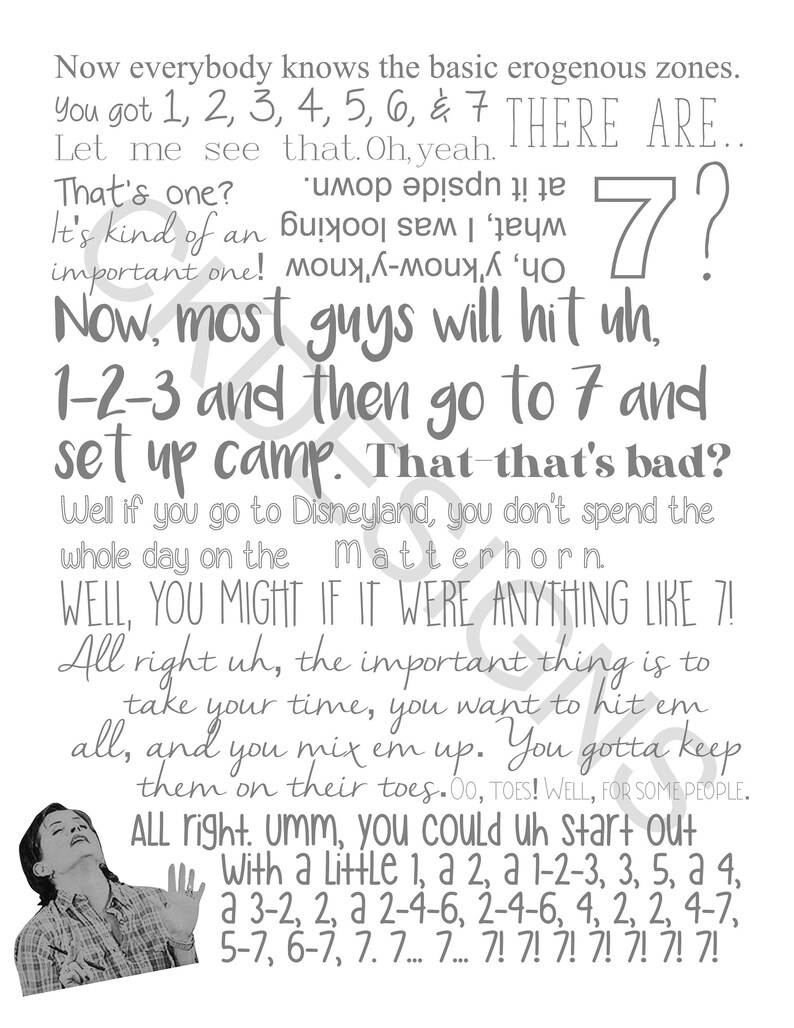 Now everybody knows the basic erogenous zones.
You got 1, 2, 3, 4, 5, 6, & 7
THERE ARE..
Let me see that. Oh, yeah.
That's one?
It's kind of an
important one!
Oh, y'know-y'know
what, I was looking
at it upside down.
7?
Now, most guys will hit uh,
1-2-3 and then go to 7 and
set up camp. That-that's bad?
Well if you go to Disneyland, you don't spend the
whole day on the Matterhorn.
WELL, YOU MIGHT IF IT WERE ANYTHING LIKE 7!
All right uh, the important thing is to
take your time, you want to hit em
all, and you mix em up. You gotta keep
them on their toes. OO, TOES! WELL, FOR SOME PEOPLE.
All right. Umm, you could uh start out
with a little 1, a 2, a 1-2-3, 3, 5, a 4,
a 3-2, 2, a 2-4-6, 2-4-6, 4, 2, 2, 4-7,
5-7, 6-7, 7. 7... 7... 7! 7! 7! 7! 7! 7! 7!
CKDESIGNS